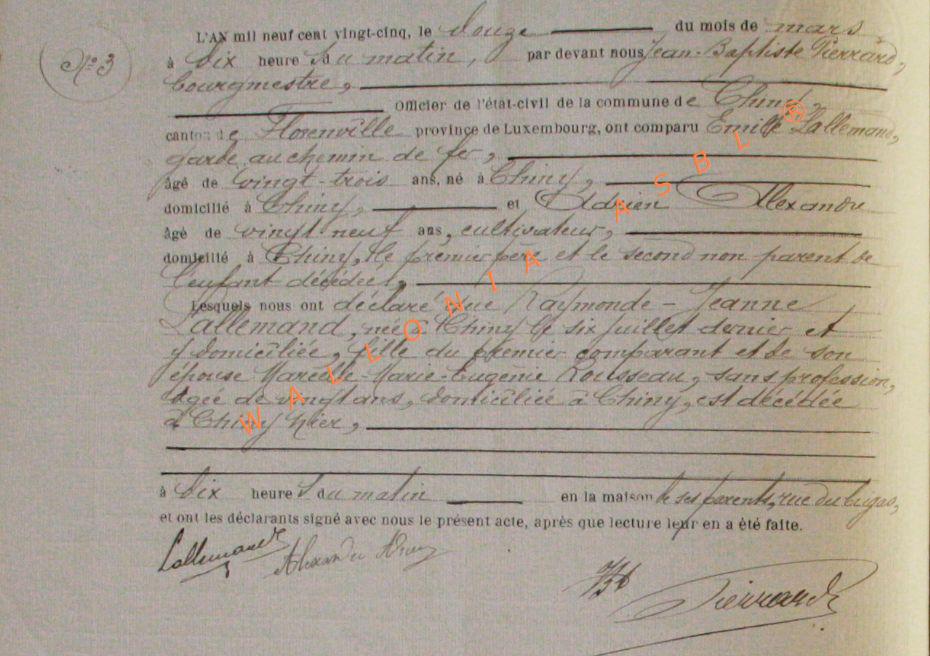 N° 3
L'AN mil neuf cent vingt-cinq, le douze du mois de mars
à dix heures du matin, par devant nous Jean-Baptiste Pierrard,
bourgmestre,
Officier de l'état-civil de la commune de Chiny,
canton de Florenville province de Luxembourg, ont comparu Emile Lallemand,
garde au chemin de fer,
âgé de vingt-trois ans, né à Chiny,
domicilié à Chiny, et Adrien Alexandre
âgé de vingt-neuf ans, cultivateur,
domicilié à Chiny, le premier père et le second non parent de
l'enfant décédée,
Lesquels nous ont déclaré que Raymonde-Jeanne
Lallemand, née à Chiny le six juillet dernier et
y domiciliée, fille du premier comparant et de son
épouse Marcelle-Marie-Eugénie Rousseau, sans profession,
âgée de vingt ans, domiciliée à Chiny, est décédée
à Chiny hier,
à dix heures du matin en la maison de ses parents, rue du
et ont les déclarants signé avec nous le présent acte, après que lecture leur en a été faite.
Lallemand Alexandre
Pierrard
WALLONIA ASBL ®